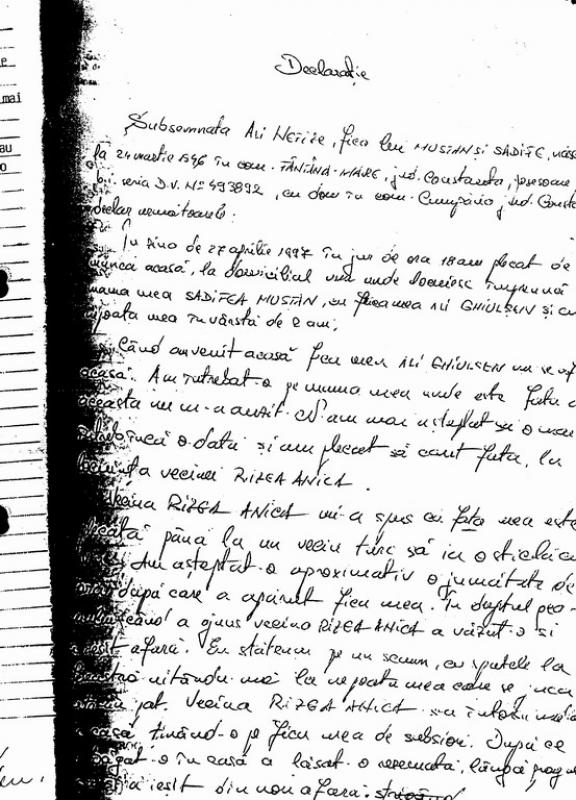 e
mai
au
o
Declarație
Subsemnata ALI NETIRE, fiica lui MUSTAN ȘI SADIFE,
la 24 martie 1946 în com. FÂNTÂNA-MARE, jud. Constanța, posesoare
seria D.V. Nº 493892, cu dom în com. Cumpăna jud.
declar următoarele:
În ziua de 27 aprilie 1997 în jur de ora 18 am plecat de
acasă, la domiciliul unde locuiesc împreună
mama mea SADIFEA MUSTAN, cu fiica mea ALI GHIULSEN și cu
mea în vârstă de 2 ani;
Când am venit acasă fiica mea ALI GHIULSEN nu se
acasă. Am întrebat-o pe mama mea unde este fata
aceasta nu m-a auzit. N-am mai așteptat să o mai
încă o dată și am plecat să caut fata, la
vecinei RIZEA ANICA.
RIZEA ANICA mi-a spus că fata mea este
până la un vecin turc să ia o sticlă
Am așteptat-o aproximativ o jumătate de
după care a apărut fiica mea. În dreptul
când a ajuns vecina RIZEA ANICA a văzut-o și
afară. Eu stăteam pe un scaun, cu spatele la
uitându-mă la nepoata mea care se juca
pat. Vecina RIZEA ANICA s-a întors
ținând-o pe fiica mea de subsiori. După ce
o în casă a lăsat-o rezemată, lângă
ieșit din nou afară